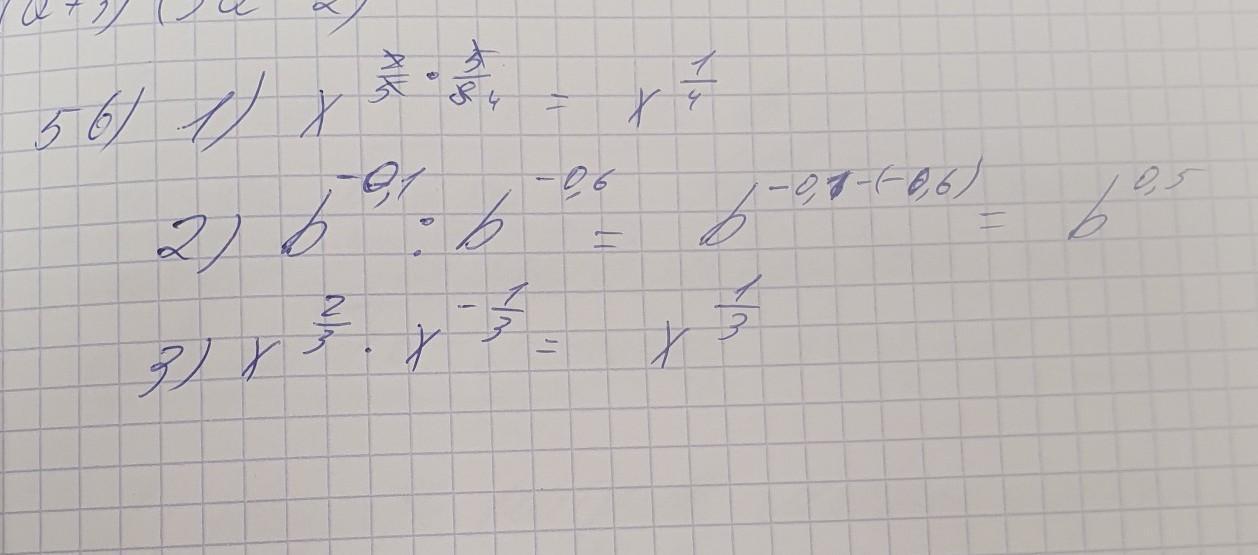 56) 1) x^(2/5 · 5/8 4) = x^(1/4)
2) b^(-0,1) : b^(-0,6) = b^(-0,1-(-0,6)) = b^(0,5)
3) x^(2/3) · x^(-1/3) = x^(1/3)